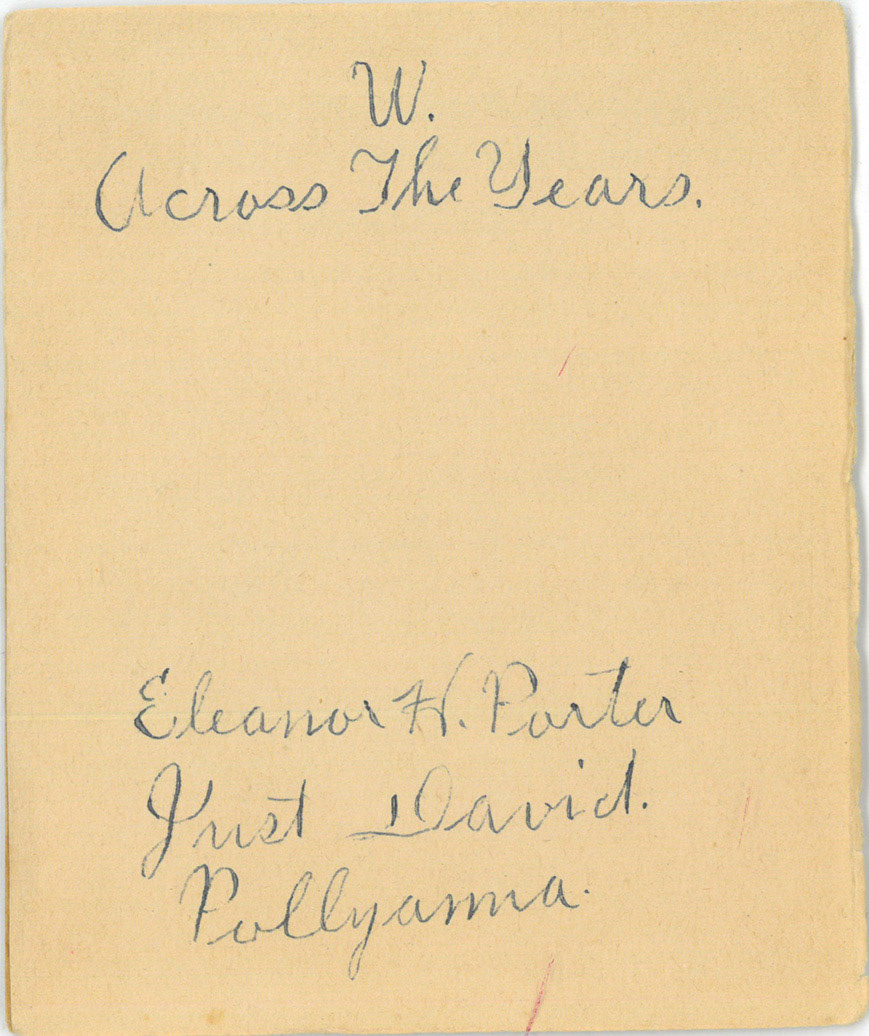 W.
Across The Years.
Eleanor H. Porter
Just David.
Pollyanna.